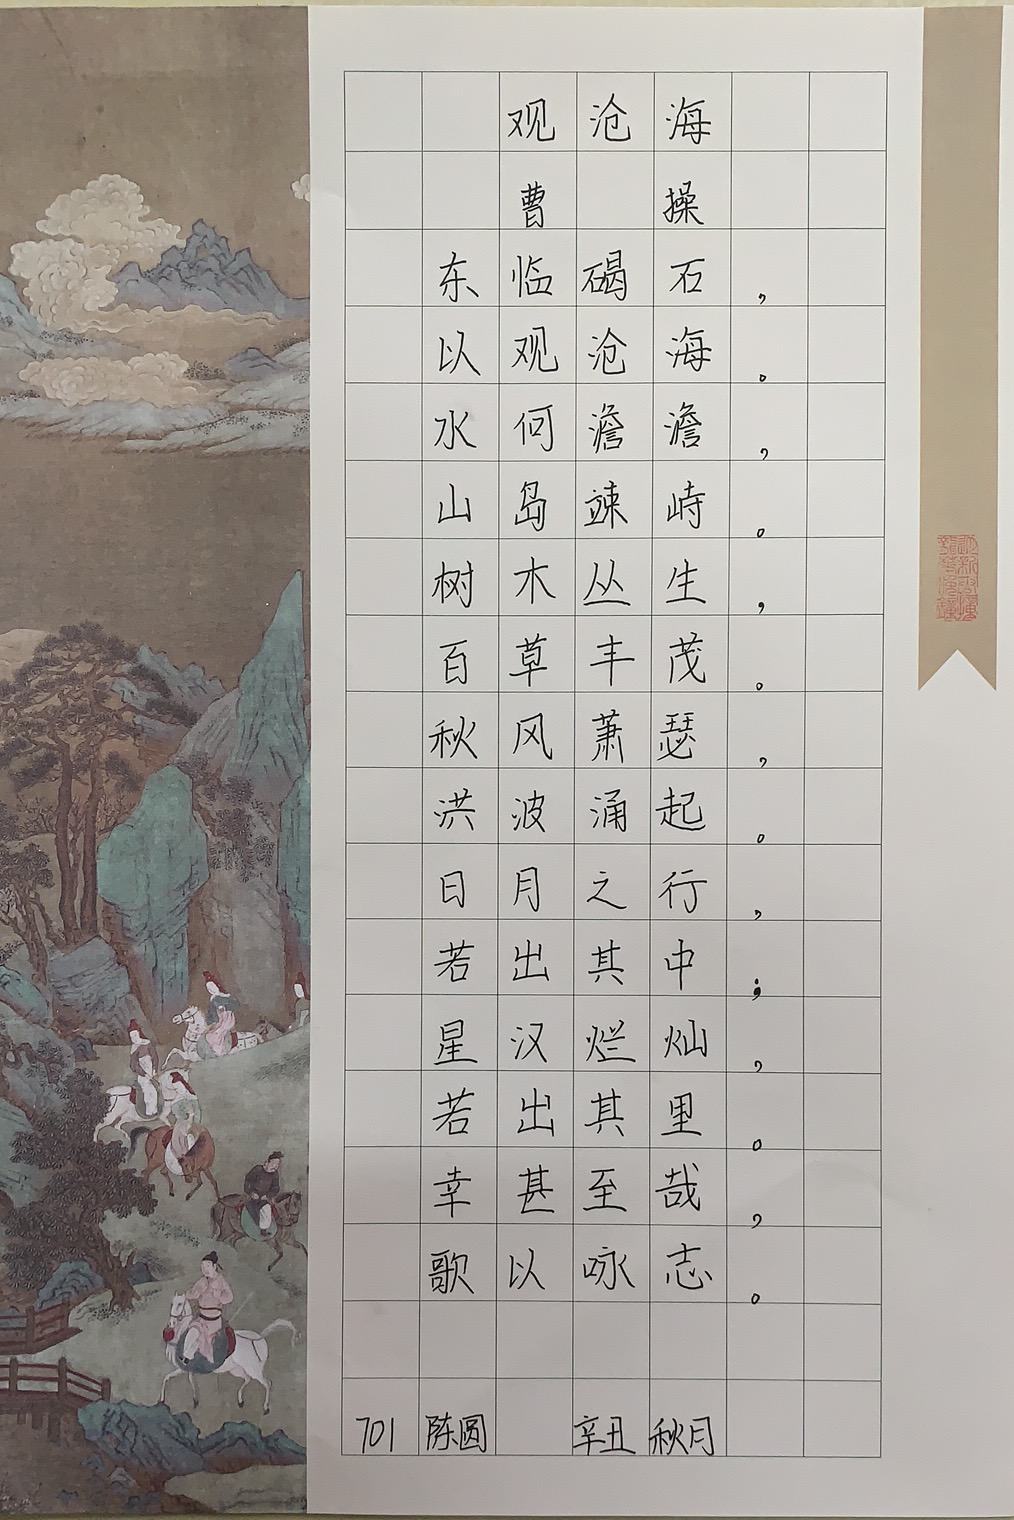 观沧海
曹操
东临碣石，
以观沧海。
水何澹澹，
山岛竦峙。
树木丛生，
百草丰茂。
秋风萧瑟，
洪波涌起。
日月之行，
若出其中；
星汉烂灿，
若出其里。
幸甚至哉，
歌以咏志。
701 陈圆 辛丑 秋月